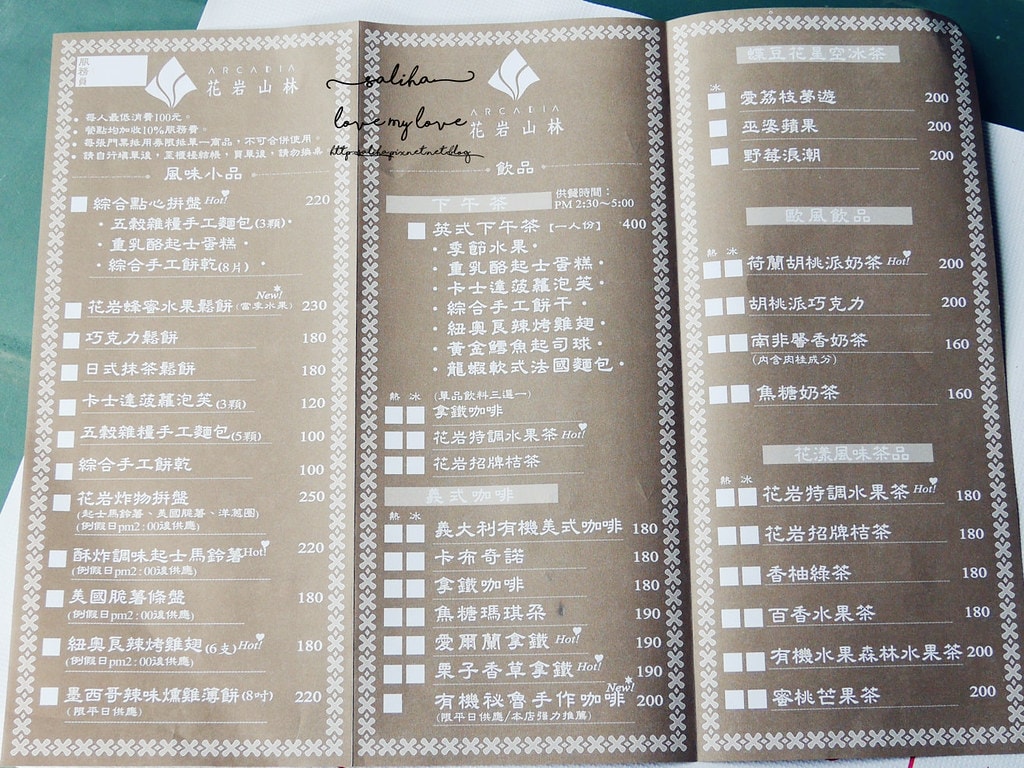 服務員
ARCADIA
花岩山林
• 每人最低消費100元。
• 餐點均加收10%服務費。
• 每張門票抵用券限抵單一商品，不可合併使用。
• 請自行填單後，至櫃檯結帳，買單後，請勿換桌
風味小品
綜合點心拼盤 Hot! 220
• 五穀雜糧手工麵包(3顆)•
• 重乳酪起士蛋糕•
• 綜合手工餅乾(8片) •
花岩蜂蜜水果鬆餅(當季水果) New! 230
巧克力鬆餅 180
日式抹茶鬆餅 180
卡士達菠蘿泡芙(3顆) 120
五穀雜糧手工麵包(5顆) 100
綜合手工餅乾 100
花岩炸物拼盤 250
(起士馬鈴薯、美國脆薯、洋蔥圈)
(例假日pm2：00後供應)
酥炸調味起士馬鈴薯 Hot! 220
(例假日pm2：00後供應)
美國脆薯條盤 180
(例假日pm2：00後供應)
紐奧良辣烤雞翅(6支) Hot! 180
(例假日pm2：00後供應)
墨西哥辣味燻雞薄餅(8吋) 220
(限平日供應)
saliha
love my love
ARCADIA
花岩山林
http://saliha.pixnet.net/blog
飲品
下午茶
供餐時間：
PM 2:30～5:00
英式下午茶【一人份】 400
• 季節水果•
• 重乳酪起士蛋糕•
• 卡士達菠蘿泡芙•
• 綜合手工餅干•
• 紐奧良辣烤雞翅•
• 黃金鱈魚起司球•
• 龍蝦軟式法國麵包•
熱 冰 (單品飲料三選一)
拿鐵咖啡
花岩特調水果茶 Hot!
花岩招牌桔茶
義式咖啡
熱 冰
義大利有機美式咖啡 180
卡布奇諾 180
拿鐵咖啡 180
焦糖瑪琪朵 190
愛爾蘭拿鐵 Hot! 190
栗子香草拿鐵 Hot! 190
有機祕魯手作咖啡 New! 200
(限平日供應/本店強力推薦)
豌豆花星空冰茶
冰
愛荔枝夢遊 200
巫婆蘋果 200
野莓浪潮 200
歐風飲品
熱 冰
荷蘭胡桃派奶茶 Hot! 200
胡桃派巧克力 200
南非馨香奶茶 160
(內含肉桂成分)
焦糖奶茶 160
花漾風味茶品
熱 冰
花岩特調水果茶 Hot! 180
花岩招牌桔茶 180
香柚綠茶 180
百香水果茶 180
有機水果森林水果茶 200
蜜桃芒果茶 200